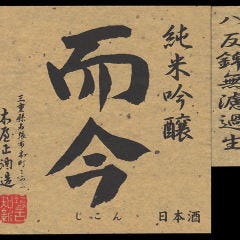 八反錦無濾過生
純米吟醸
而今
じこん
日本酒
三重県名張市本町
木屋正酒造